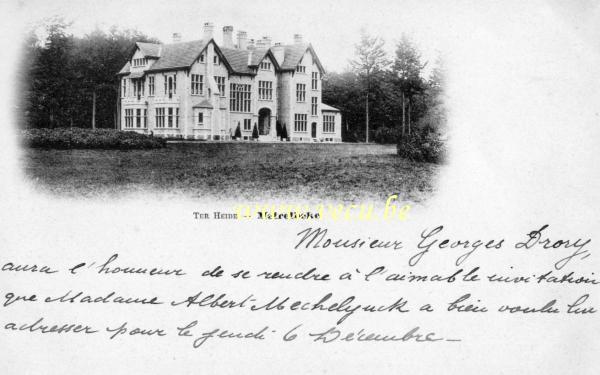 TER HEIDE - Melreloeke
www.vecu.be
Monsieur Georges Drory,
aura l'honneur de se rendre à l'aimable invitation
que Madame Albert-Mechelynck a bien voulu lui
adresser pour le jeudi 6 Décembre -